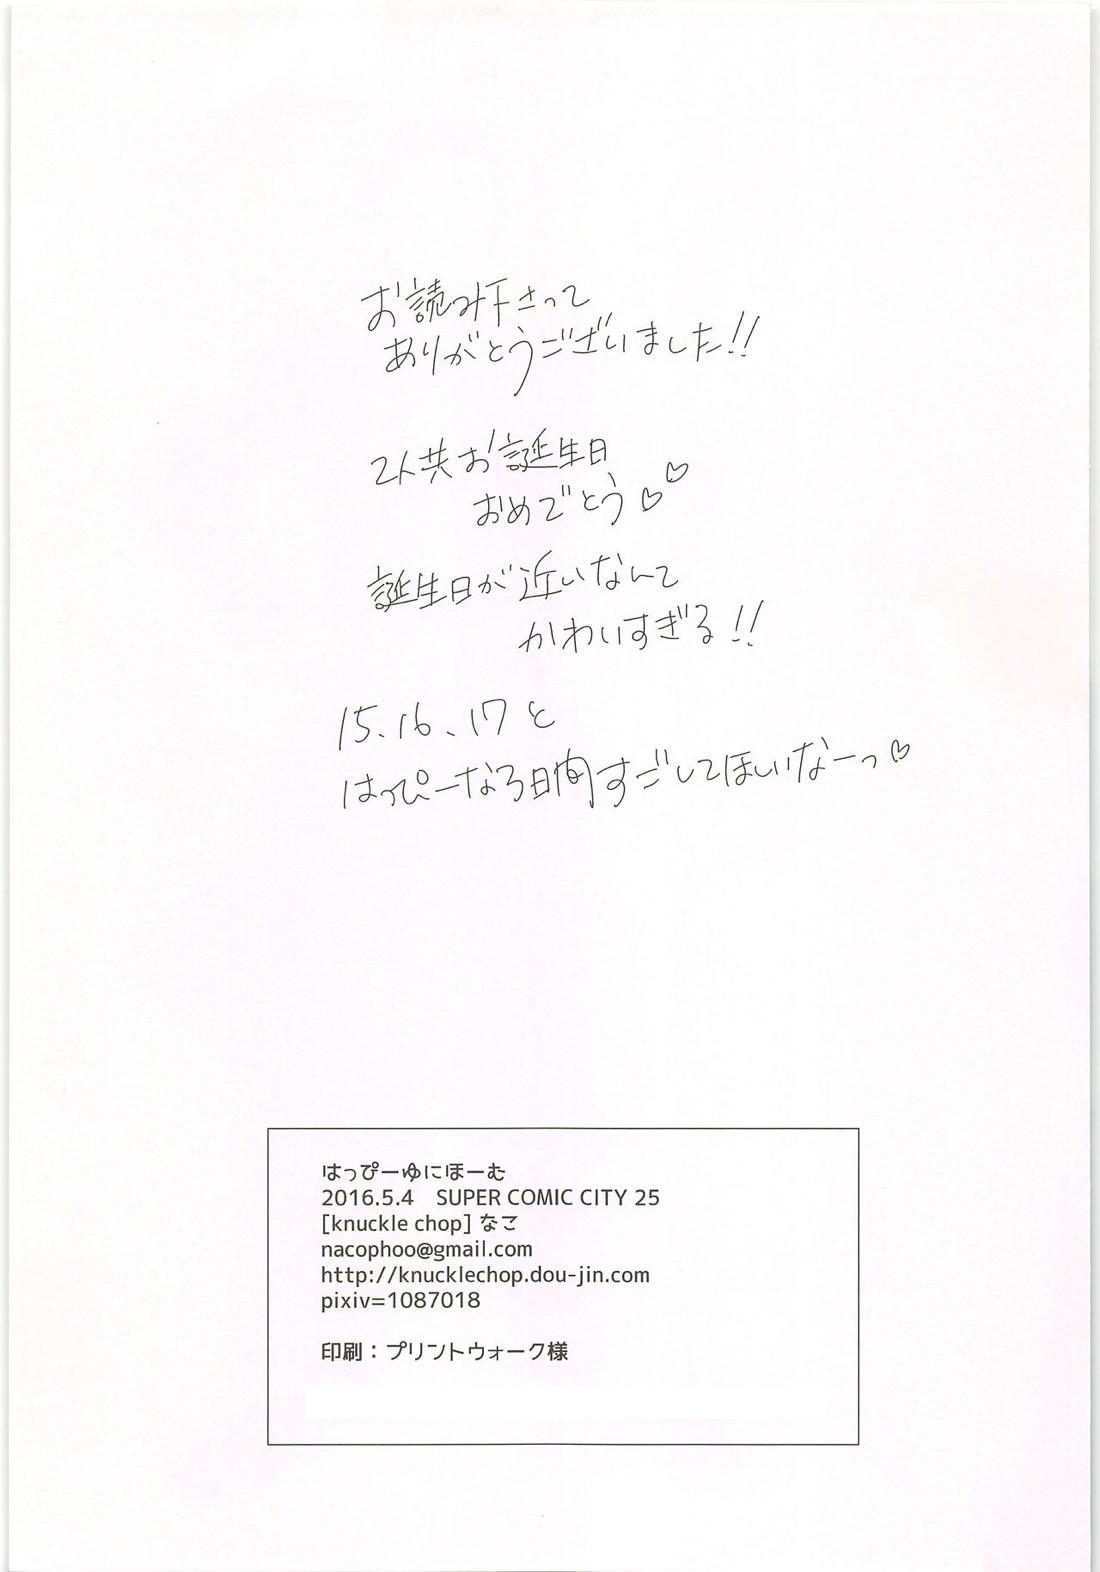 お読み下さって
ありがとうございました!!
2人共お誕生日
おめでとう♡♡
誕生日が近いなんて
かわいすぎる!!
15、16、17と
はっぴーな3日間すごしてほしいなーっ♡
はっぴーゆにほーむ
2016.5.4　SUPER COMIC CITY 25
[knuckle chop] なこ
nacophoo@gmail.com
http://knucklechop.dou-jin.com
pixiv=1087018
印刷：プリントウォーク様